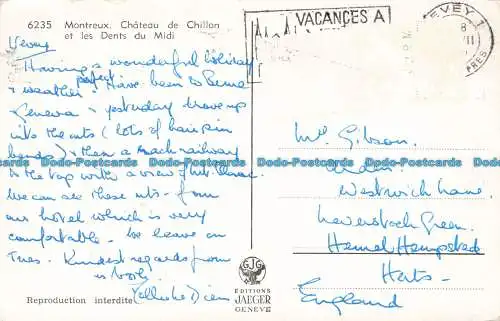 6235 Montreux. Château de Chillon
et les Dents du Midi
VACANCES A
VEVEY 1
Vevey
Having a wonderful holiday
perfect
& weather. Have been to Berne
Geneva & yesterday drove up
into the mts (lots of hairpin
bends) & then a rack railway
to the top with a view of Mt. Blanc.
We can see these mts. from
our hotel which is very
comfortable. We leave on
Tues. Kindest regards from
us both.
Mr Gibson.
Westwick Lane
Leverstock Green.
Hemel Hempstead
Herts.
England
Reproduction interdite
GJG
EDITIONS
JAEGER
GENÈVE
Dodo-Postcards Dodo-Postcards Dodo-Postcards Dodo-Postcards Dodo-Postcards